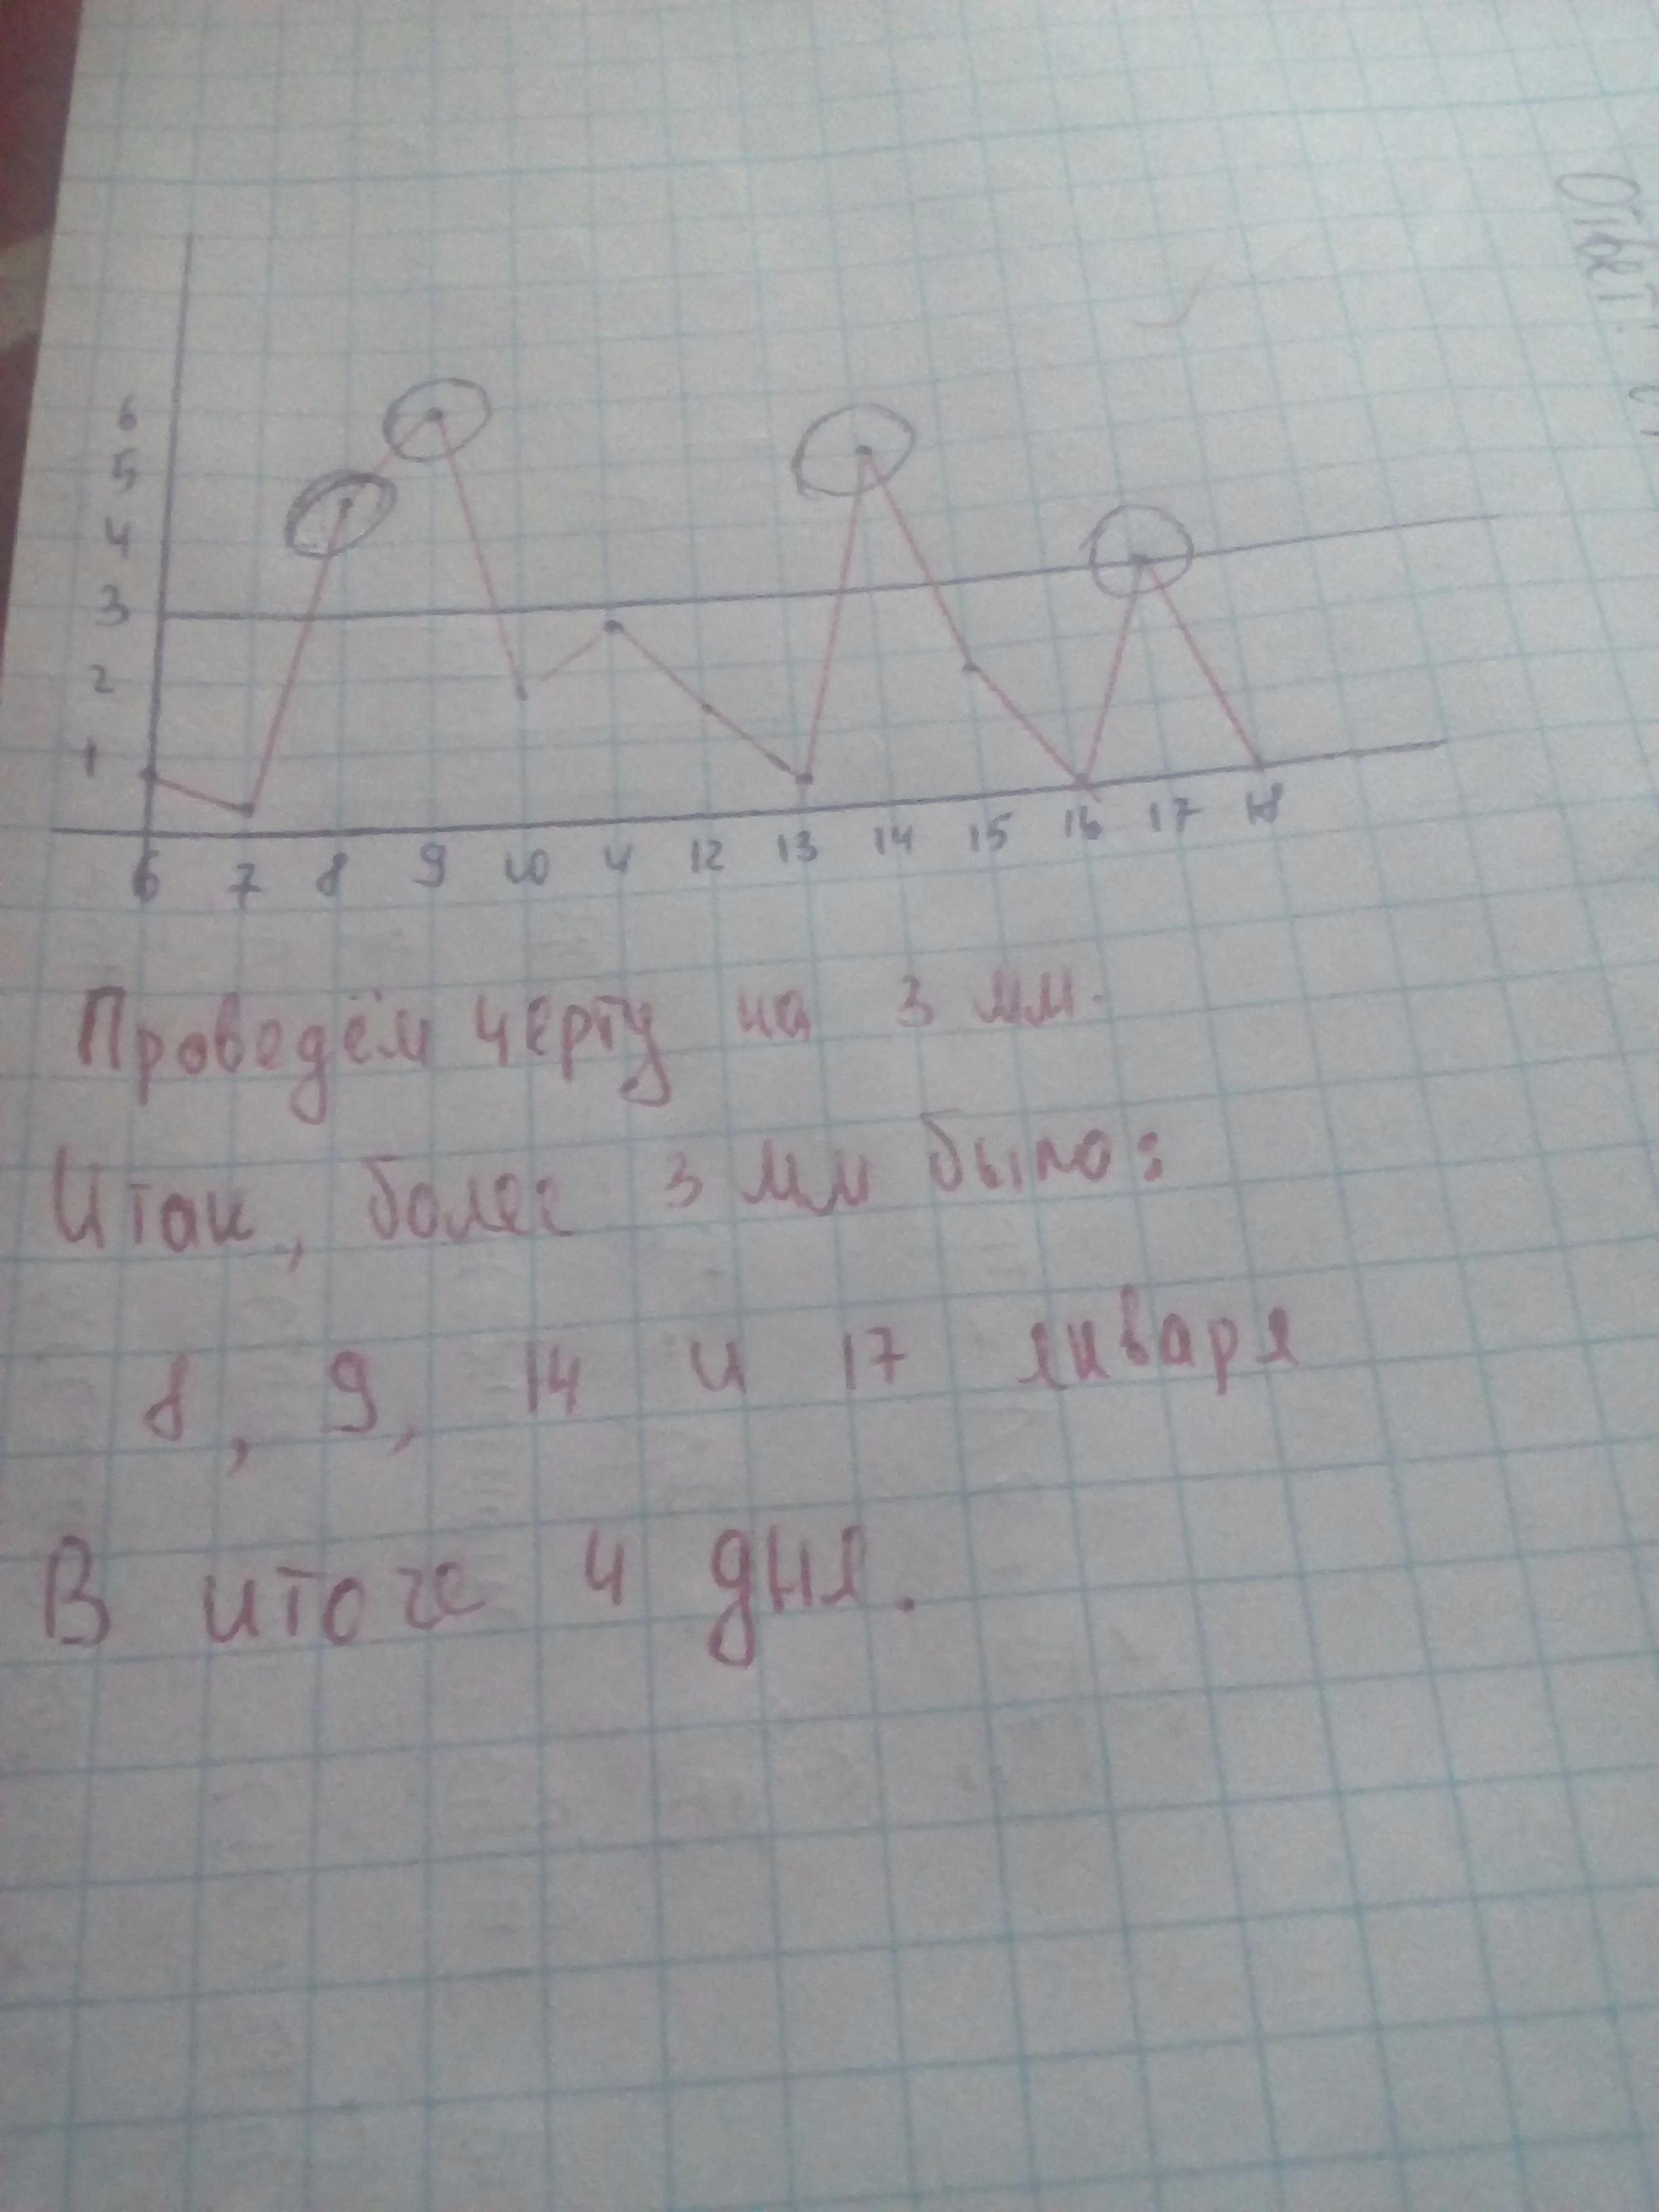 6
5
4
3
2
1
6 7 8 9 10 11 12 13 14 15 16 17 18
Проведём черту на 3 мм.
Итак, более 3 мм было:
8, 9, 14 и 17 января
В итоге 4 дня.
Ответ: